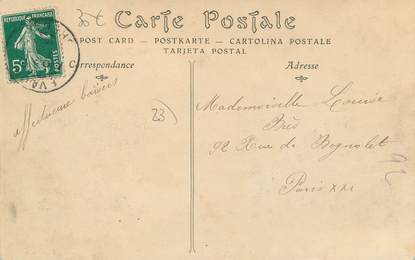 35€
Carte Postale
POST CARD — POSTKARTE — CARTOLINA POSTALE
TARJETA POSTAL
Correspondance
Adresse
REPUBLIQUE FRANÇAISE
5c
POSTES
affectueux baisers
23)
Mademoiselle Louise
Près
92 Rue de Bagnolet
Paris XX
92